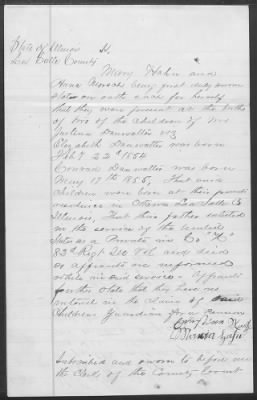 State of Illinois } ss.
La Salle County }
Mary Hahn and
Anna being first duly sworn
state on oath each for herself
that they were present at the birth
of two of the children of Mrs
Danwalter viz
Elizabeth Danwalter was born
Feb'y 22d 1854
Conrad Danwalter was born
May 17th 1856, That said
children were born at their parents
residence in Ottawa La Salle Co
Illinois, That their father enlisted
in the service of the United
States as a Private in Co "H"
82d Regt Ills Vol and died
as affiants are informed
while in said service. Affiants
further state that they have no
interest in the claim of said
children's Guardian for a pension
Subscribed and sworn to before me
the Clerk of the County Court